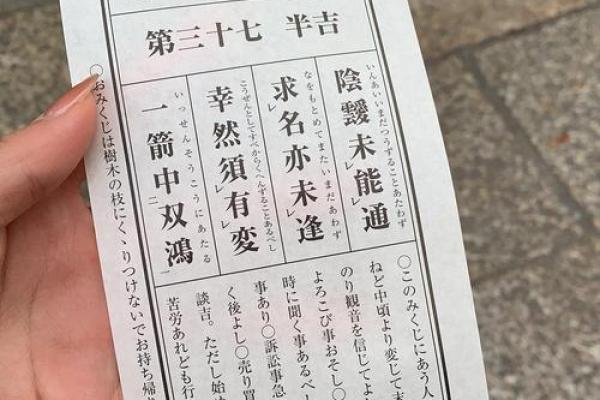 第三十七 半吉
いんあいいまだつうずることあたわず
陰靉未能レ通
なをもとめてまたいまだあわず
求レ名亦未レ逢
こうぜんとしてすべからくへんずることあるべし
幸然須レ有レ変
いっせんそうこうにあたる
一箭中二双鴻一
〇このみくじにあう人
ねど中頃より変じて末
のり観音を信じてよ
よろこび事おそし〇
時に聞く事あるべ
事あり〇訴訟事急
く後よし〇売り買
談吉。ただし始め
苦労あれども行
〇おみくじは樹木の枝にくゝりつけないでお持ち帰